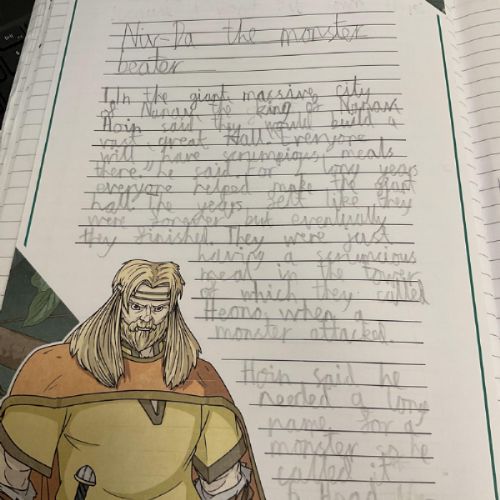 Niv-Da the monster
beater
In the giant massive city
of Nanax the king of Nanax
Hoin said they would build a
vast great Hall. Everyone
will have scrumcious meals
there," he said. For 2 long years
everyone helped make the giant
hall. The years felt like they
were forever but eventually
they finished. They were just
having a scrumcious
meal in the tower
of which they called
Heono, when a
monster attacked.
Hoin said he
needed a long
name for a
monster so he
called it